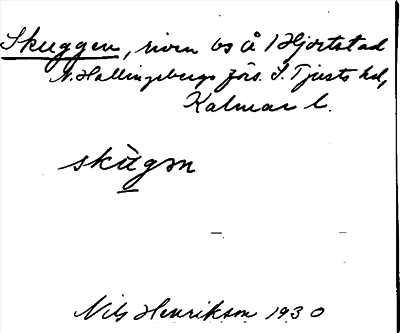 Skuggen, riven bs å Hjortstad
N. Hallingebergs förs. S. Tjusts hd,
Kalmar l.
skùgən
Nils Henrikson 1930